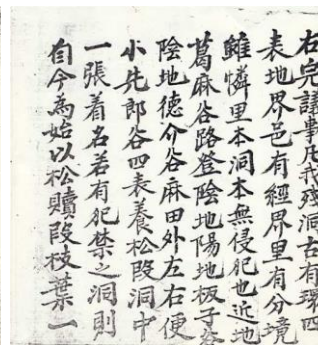 右完議事凡我殘洞古有環四
表地界邑有經界里有分境
雖憐里本洞本無侵犯也近地
葛麻谷路登陰地陽地板子谷
陰地德介谷麻田外左右便
小先郎谷四表養松段洞中
一張着名若有犯禁之洞則
自今為始以松贖段枝葉一